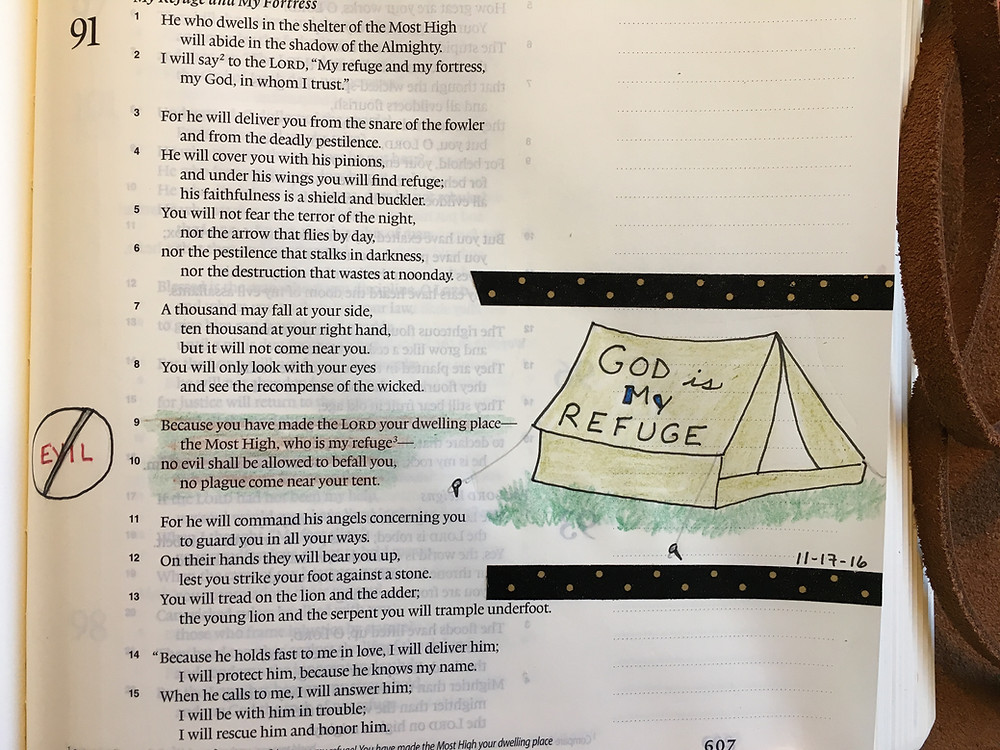 My Refuge and My Fortress
91
1 He who dwells in the shelter of the Most High
will abide in the shadow of the Almighty.
2 I will say² to the LORD, “My refuge and my fortress,
my God, in whom I trust.”
3 For he will deliver you from the snare of the fowler
and from the deadly pestilence.
4 He will cover you with his pinions,
and under his wings you will find refuge;
his faithfulness is a shield and buckler.
5 You will not fear the terror of the night,
nor the arrow that flies by day,
6 nor the pestilence that stalks in darkness,
nor the destruction that wastes at noonday.
7 A thousand may fall at your side,
ten thousand at your right hand,
but it will not come near you.
8 You will only look with your eyes
and see the recompense of the wicked.
9 Because you have made the LORD your dwelling place—
the Most High, who is my refuge³—
10 no evil shall be allowed to befall you,
no plague come near your tent.
11 For he will command his angels concerning you
to guard you in all your ways.
12 On their hands they will bear you up,
lest you strike your foot against a stone.
13 You will tread on the lion and the adder;
the young lion and the serpent you will trample underfoot.
14 “Because he holds fast to me in love, I will deliver him;
I will protect him, because he knows my name.
15 When he calls to me, I will answer him;
I will be with him in trouble;
I will rescue him and honor him.
EVIL
GOD is
My
REFUGE
11-17-16
refuge! You have made the Most High your dwelling place
607